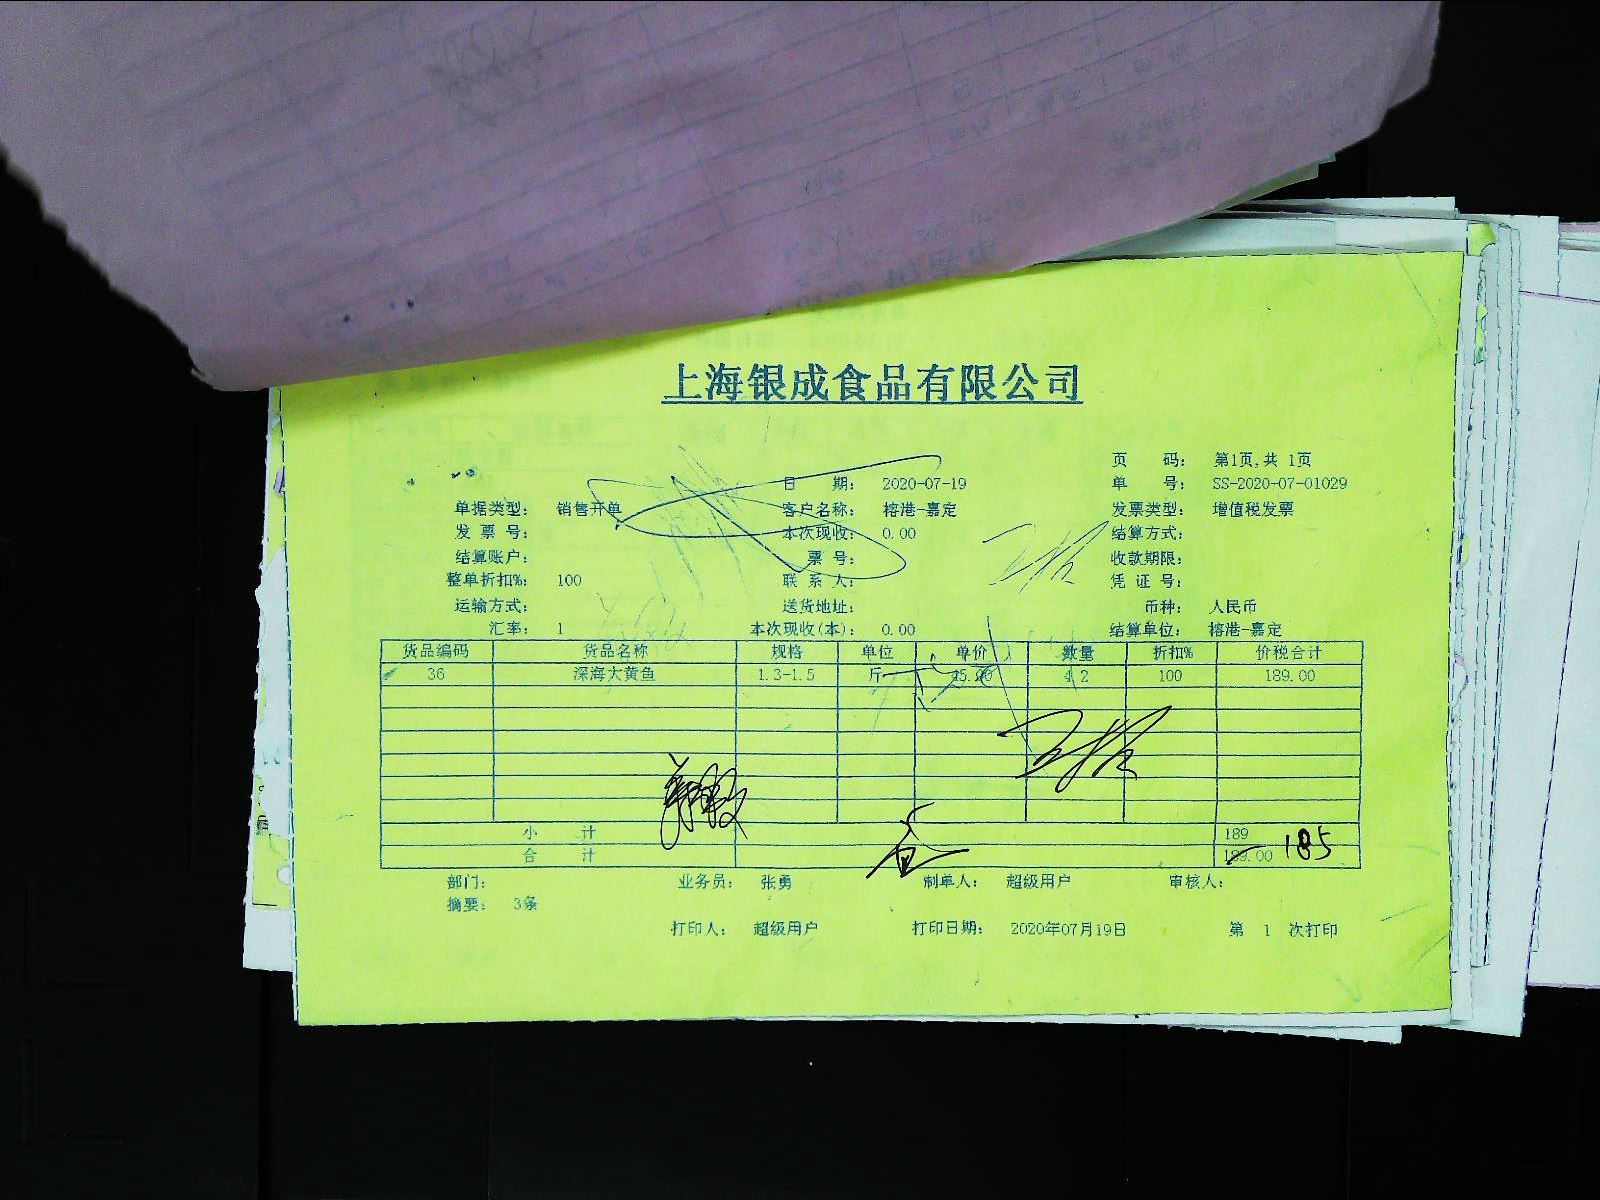 上海银成食品有限公司
页 码: 第1页,共 1页
日 期: 2020-07-19 单 号: SS-2020-07-01029
单据类型: 销售开单 客户名称: 榕港-嘉定 发票类型: 增值税发票
发 票 号: 本次现收: 0.00 结算方式:
结算账户: 票 号: 收款期限:
整单折扣%: 100 联 系 人: 凭 证 号:
运输方式: 送货地址: 币种: 人民币
汇率: 1 本次现收(本): 0.00 结算单位: 榕港-嘉定
货品编码 货品名称 规格 单位 单价 数量 折扣% 价税合计
36 深海大黄鱼 1.3-1.5 斤 45.00 4.2 100 189.00
小 计 189
合 计 189.00 185
部门: 业务员: 张勇 制单人: 超级用户 审核人:
摘要: 3条
打印人: 超级用户 打印日期: 2020年07月19日 第 1 次打印